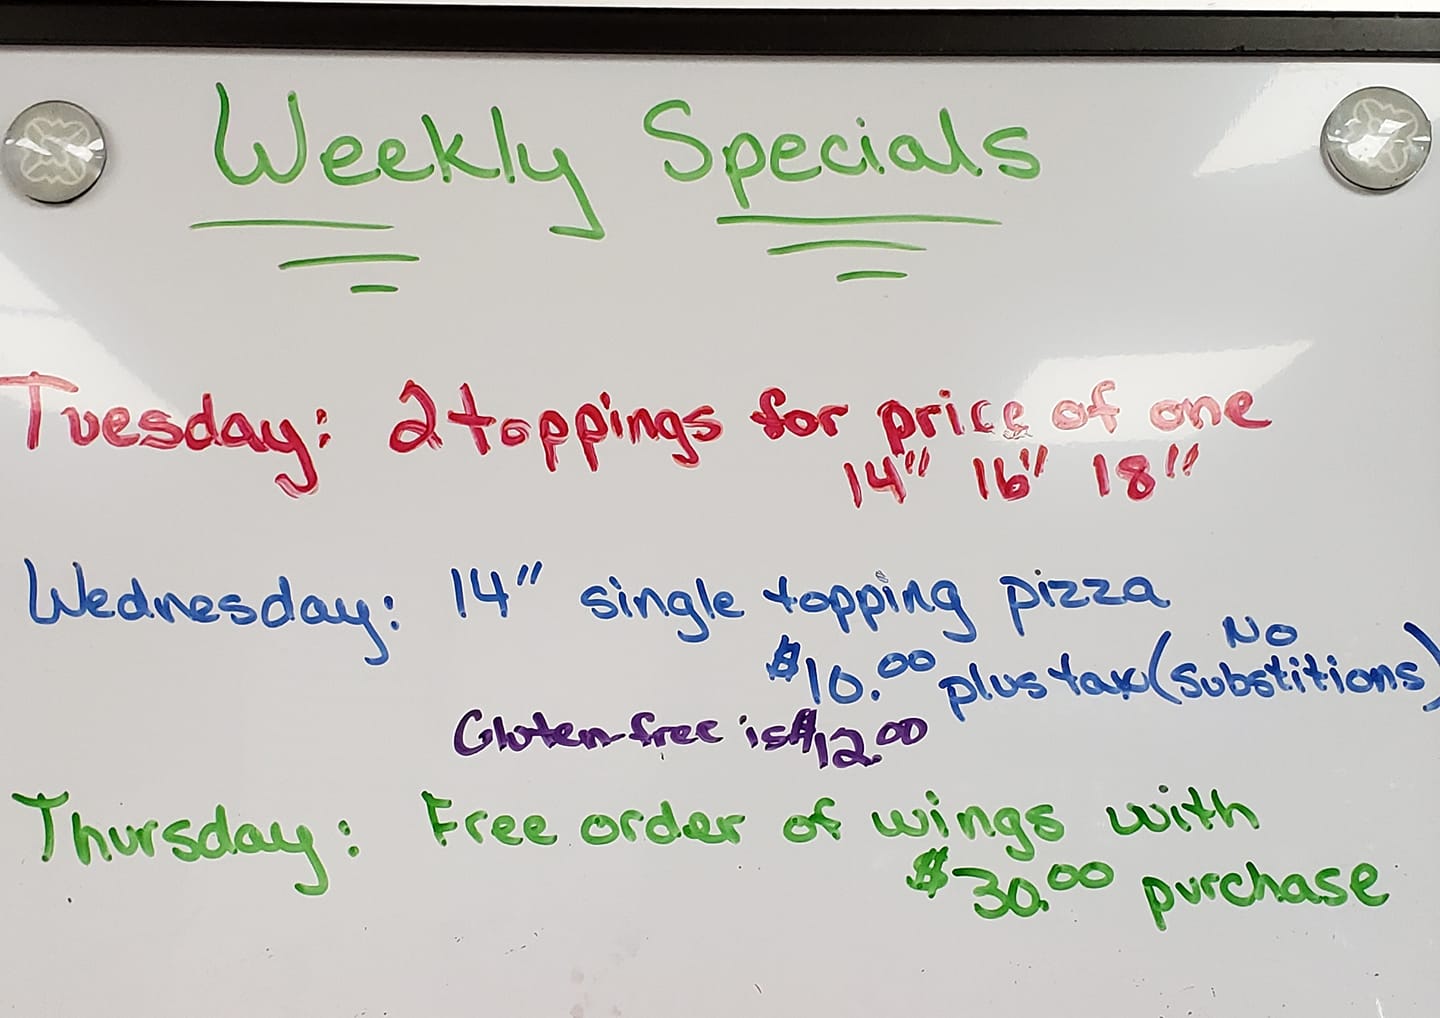 Weekly Specials
Tuesday: 2 toppings for price of one
14" 16" 18"
Wednesday: 14" single topping pizza
$10.00 plus tax (No substitions)
Gluten-free is $12.00
Thursday: Free order of wings with
$30.00 purchase